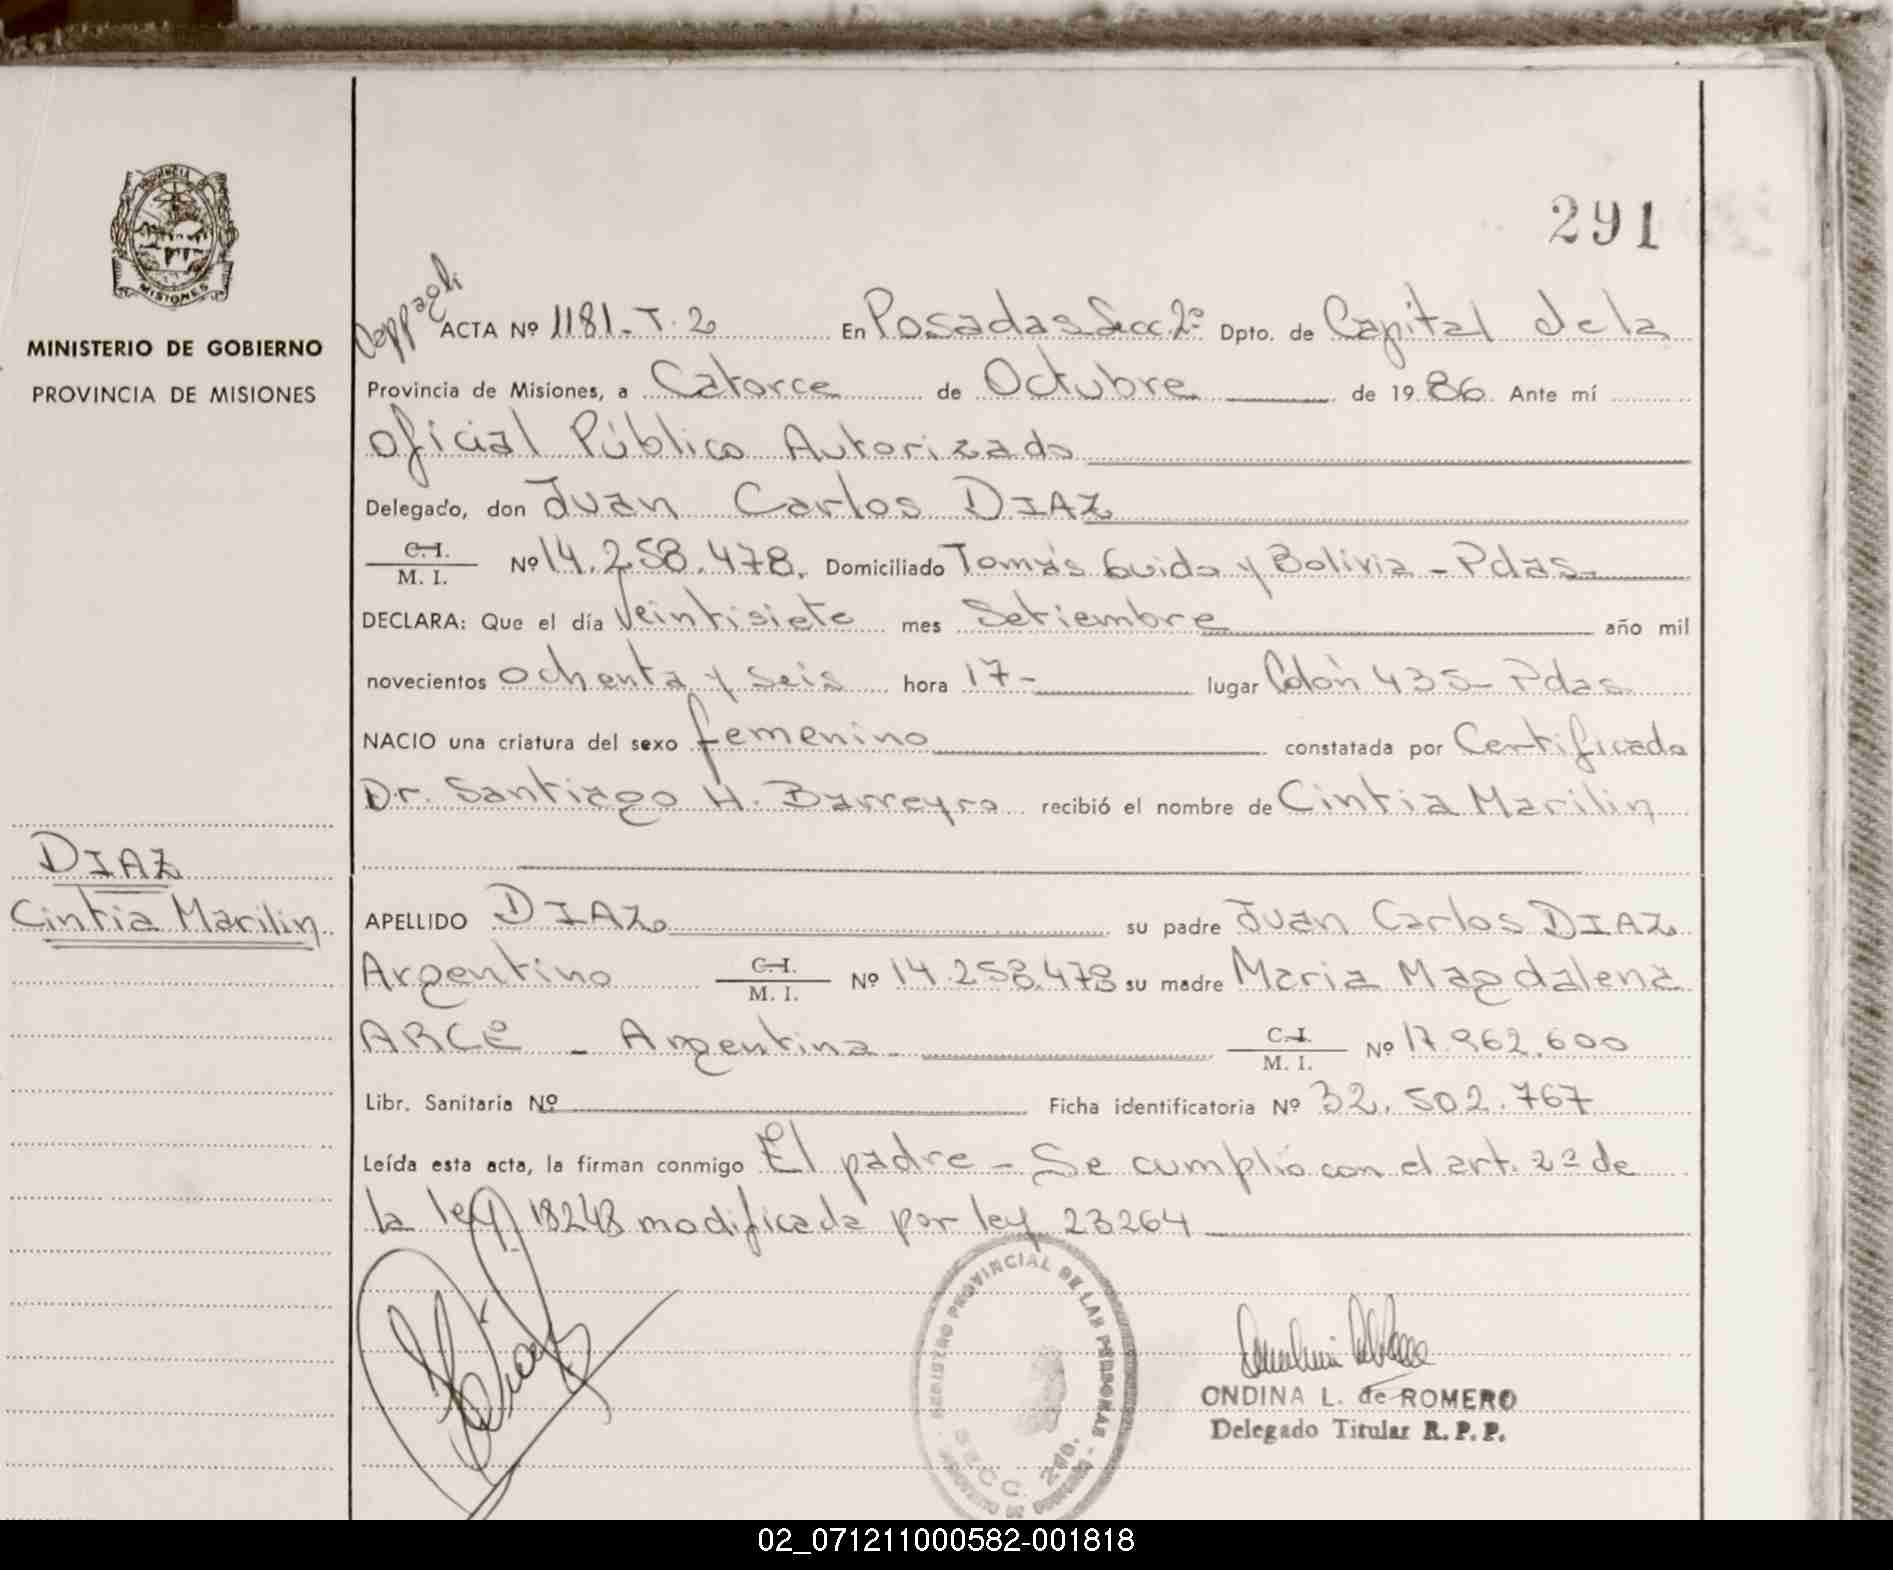 291
PROVINCIA DE
MISIONES
MINISTERIO DE GOBIERNO
PROVINCIA DE MISIONES
ACTA Nº 1181-T.2 En Posadas Secc. 2ª Dpto. de Capital de la
Provincia de Misiones, a Catorce de Octubre de 1986. Ante mí
Oficial Público Autorizado
Delegado, don Juan Carlos DIAZ
C.I.
M. I. Nº 14.258.478. Domiciliado Tomás Guido y Bolivia - Pdas.
DECLARA: Que el día Veintisiete mes Setiembre año mil
novecientos ochenta y seis hora 17- lugar Colón 435- Pdas.
NACIO una criatura del sexo femenino constatada por Certificado
Dr. Santiago H. Barreyro recibió el nombre de Cintia Marilin
DIAZ
Cintia Marilin
APELLIDO DIAZ su padre Juan Carlos DIAZ
Argentino C.I. M. I. Nº 14.258.478 su madre Maria Magdalena
ARCE - Argentina C.I. M. I. Nº 17.962.600
Libr. Sanitaria Nº Ficha identificatoria Nº 32.502.767
Leída esta acta, la firman conmigo El padre - Se cumplió con el art. 2º de
la ley 18248 modificada por ley 23264
REGISTRO PROVINCIAL DE LAS PERSONAS
SECC. 2da.
ONDINA L. de ROMERO
Delegado Titular R. P. P.
02_071211000582-001818